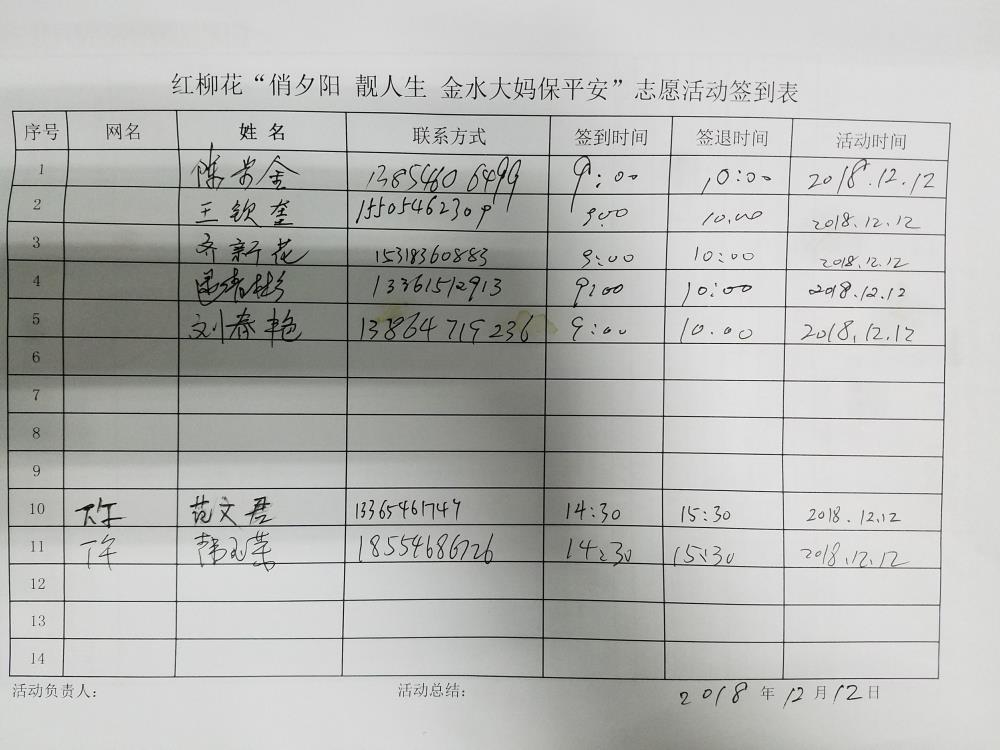 红柳花“俏夕阳 靓人生 金水大妈保平安”志愿活动签到表
序号 网名 姓名 联系方式 签到时间 签退时间 活动时间
1 9:00 10:00 2018.12.12
2 王钦奎 15505462309 9:00 10:00 2018.12.12
3 齐新花 15318360883 9:00 10:00 2018.12.12
4 13361512913 9:00 10:00 2018.12.12
5 刘春艳 13864719236 9:00 10:00 2018.12.12
6
7
8
9
10 下午 范文君 13365461747 14:30 15:30 2018.12.12
11 下午 18554686726 14:30 15:30 2018.12.12
12
13
14
活动负责人: 活动总结: 2018年12月12日